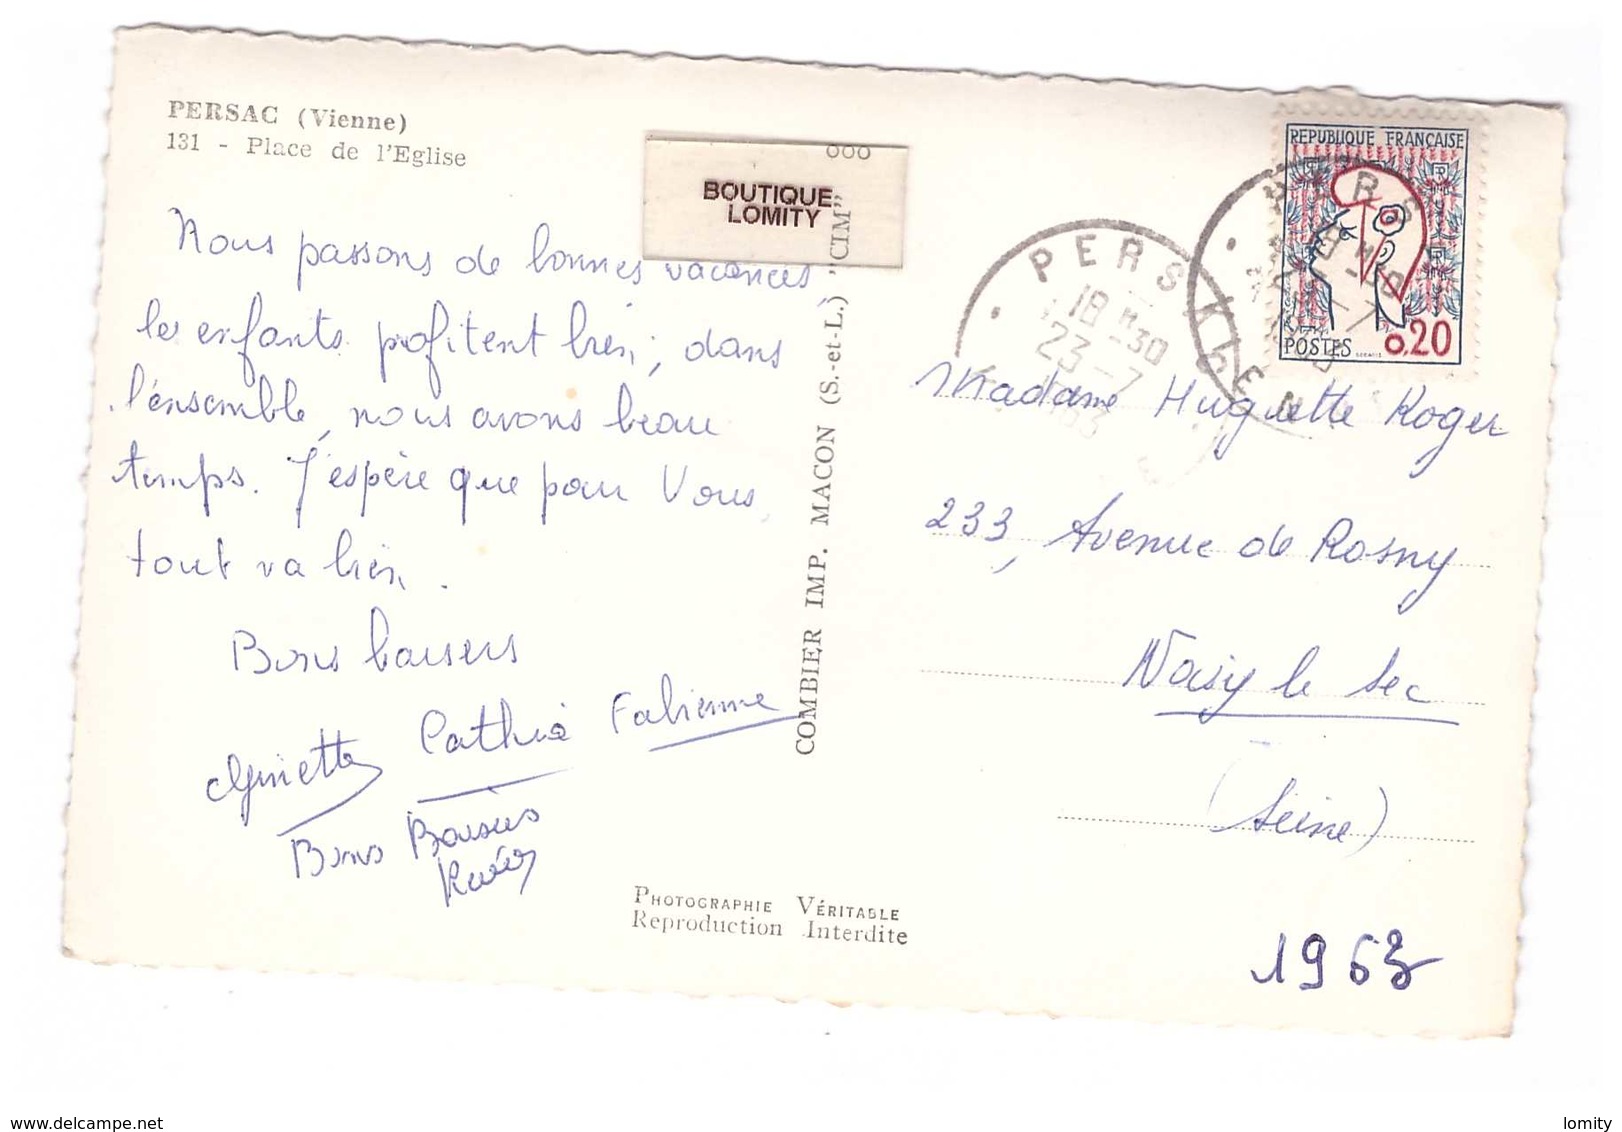 PERSAC (Vienne)
131 - Place de l'Eglise
BOUTIQUE
LOMITY
Nous passons de bonnes vacances,
les enfants profitent bien; dans
l'ensemble, nous avons beau
temps. J'espère que pour Vous,
tout va bien.
Bons baisers
Ginette Cathie Fabienne
Bons Baisers
COMBIER IMP. MACON (S.-et-L.) "CIM"
PHOTOGRAPHIE VÉRITABLE
Reproduction Interdite
REPUBLIQUE FRANÇAISE
POSTES 0,20
PERS
18 H 30
23 - 7
Madame Huguette Roger
233, Avenue de Rosny
Noisy le Sec
(Seine)
1963
www.delcampe.net
lomity